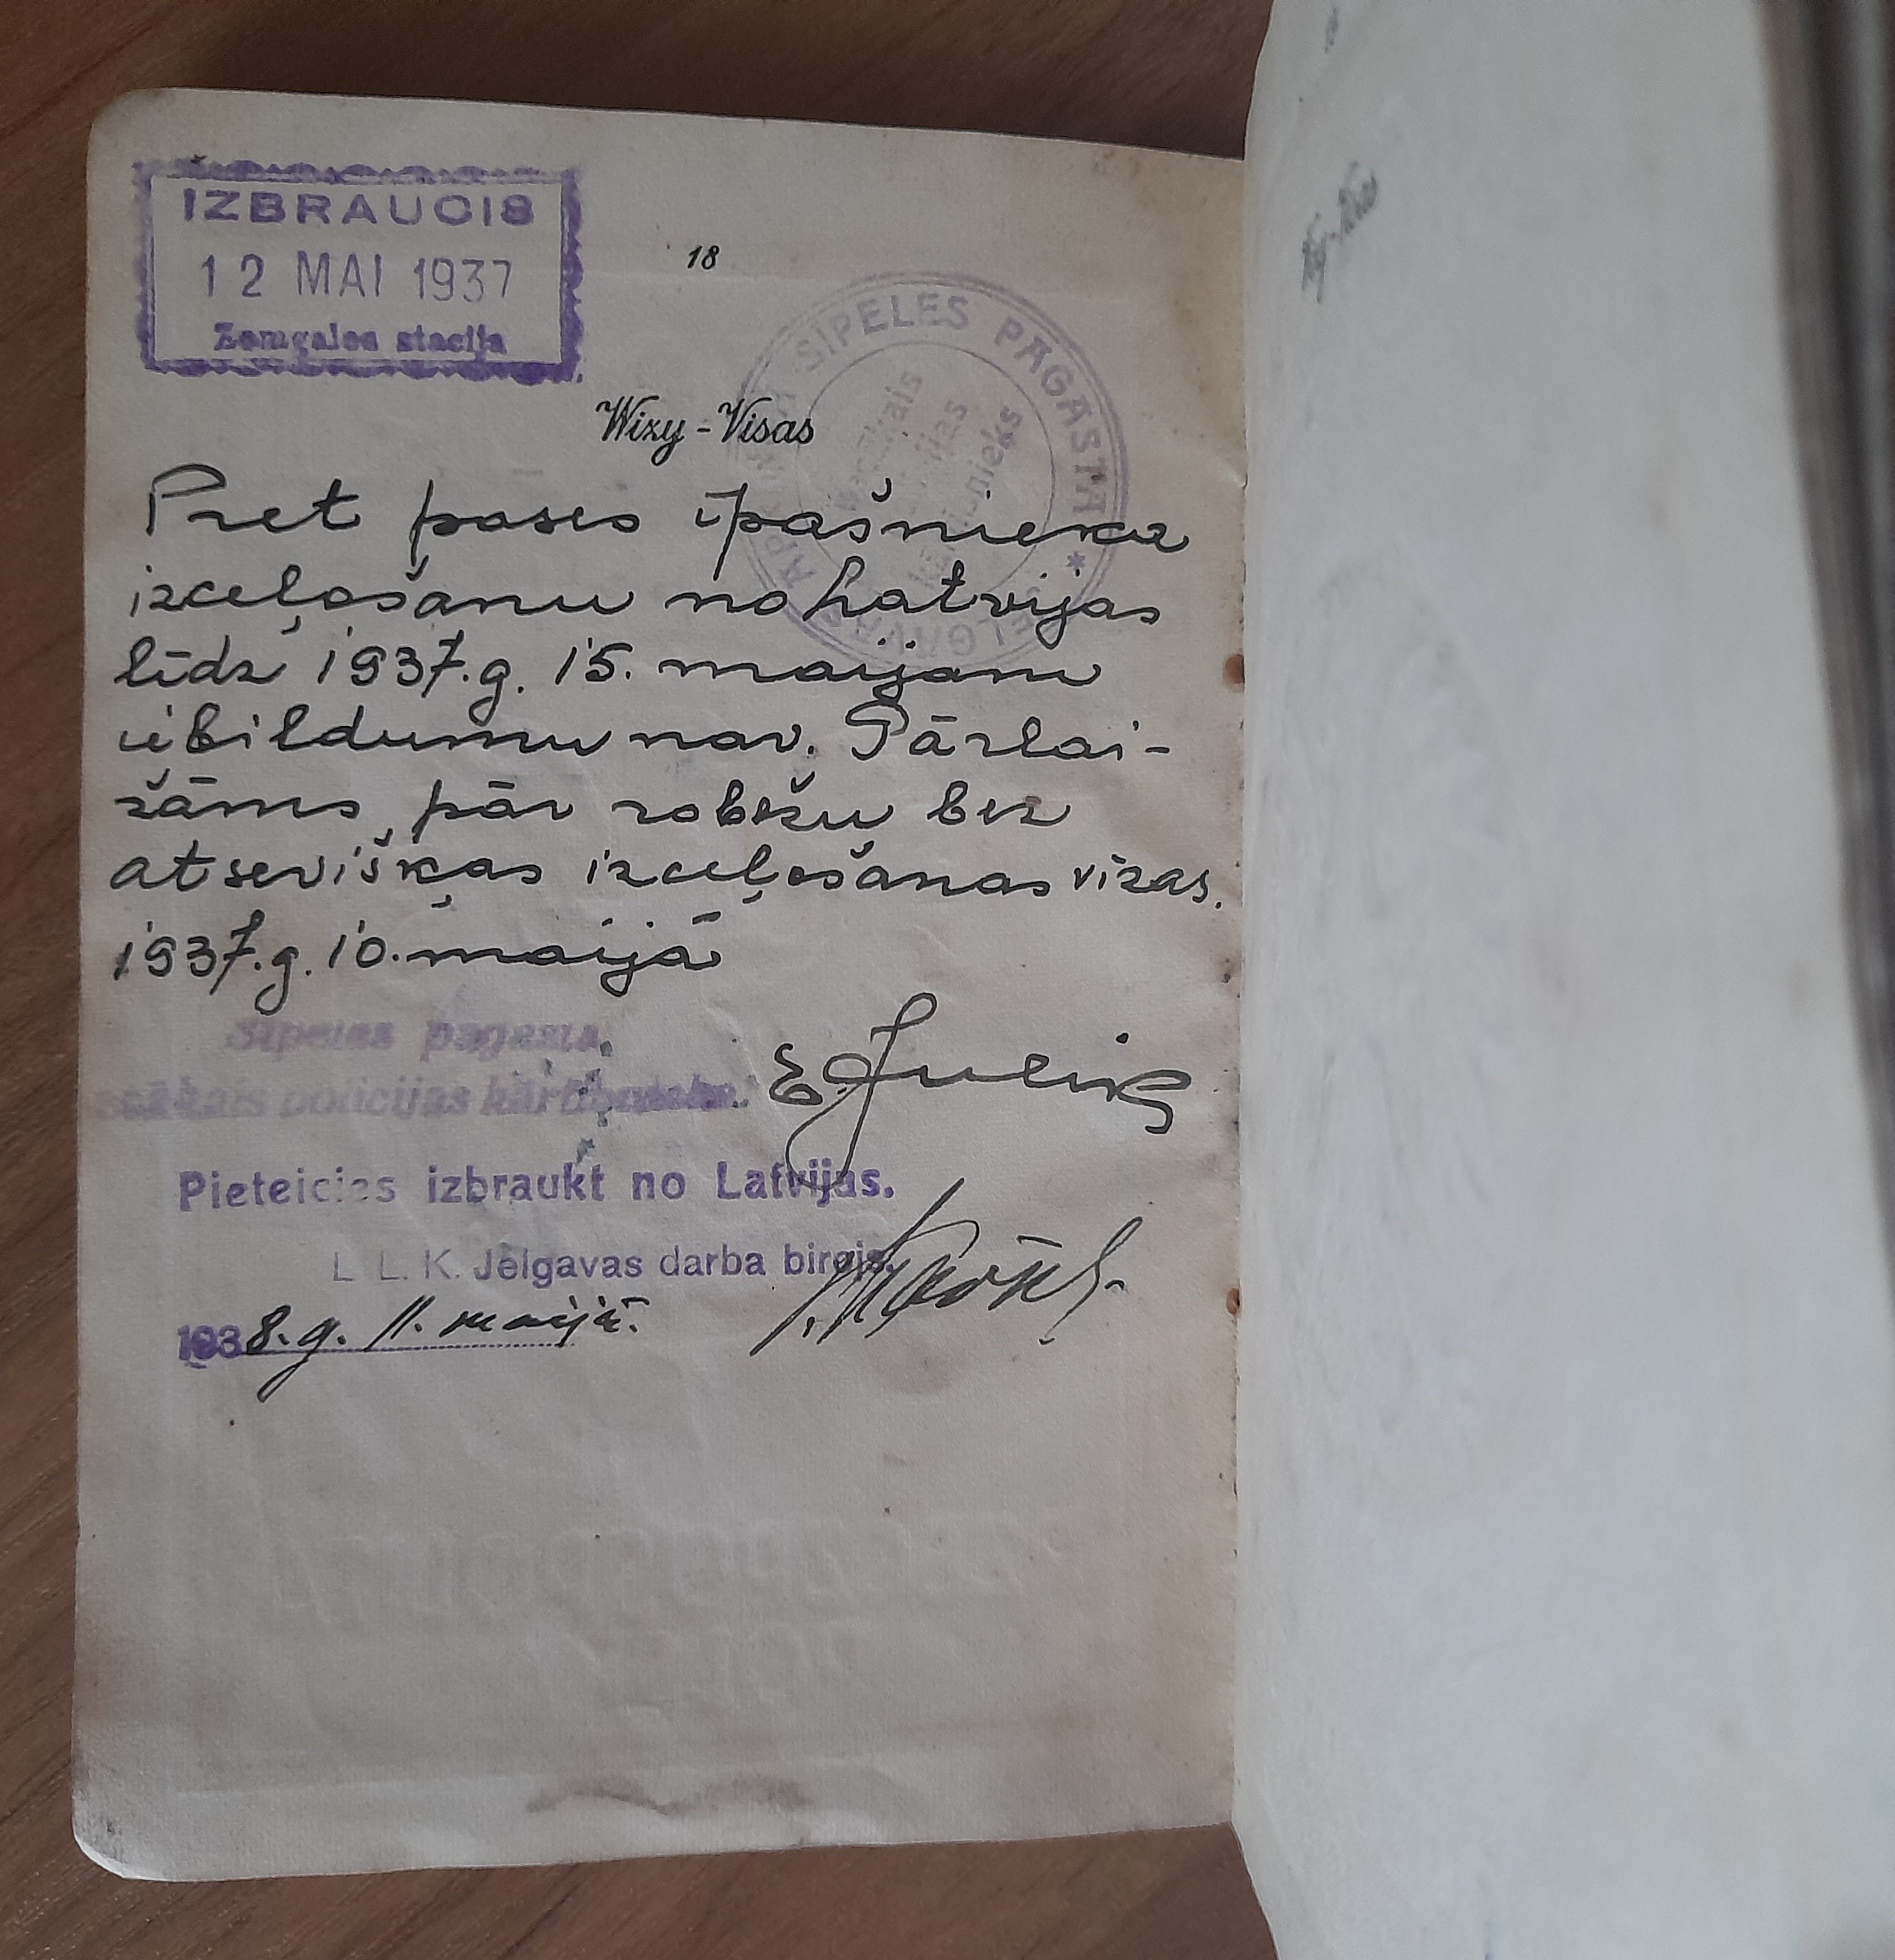 IZBRAUCIS
12 MAI 1937
Zemgales stacija
18
SĪPELES PAGASTA
JELGAVAS APRIŅĶA
Wizy - Visas
Pret pases īpašnieka
izceļošanu no Latvijas
līdz 1937. g. 15. maijam
iebildumu nav. Pārlai-
žams pār robežu bez
atsevišķas izceļošanas vīzas.
1937. g. 10. maijā
Sīpeles pagasta
policijas kārtībnieks.
Pieteicies izbraukt no Latvijas.
L. L. K. Jelgavas darba birojs.
1938. g. 11. maijā.